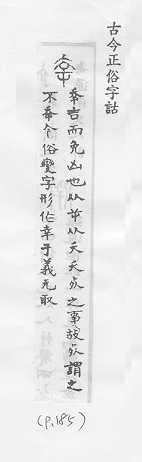 古今正俗字詁
𡴘吉而免凶也从屰从夭夭死之事故死謂之
不𡴘今俗變字形作幸于義无取
(p.185)